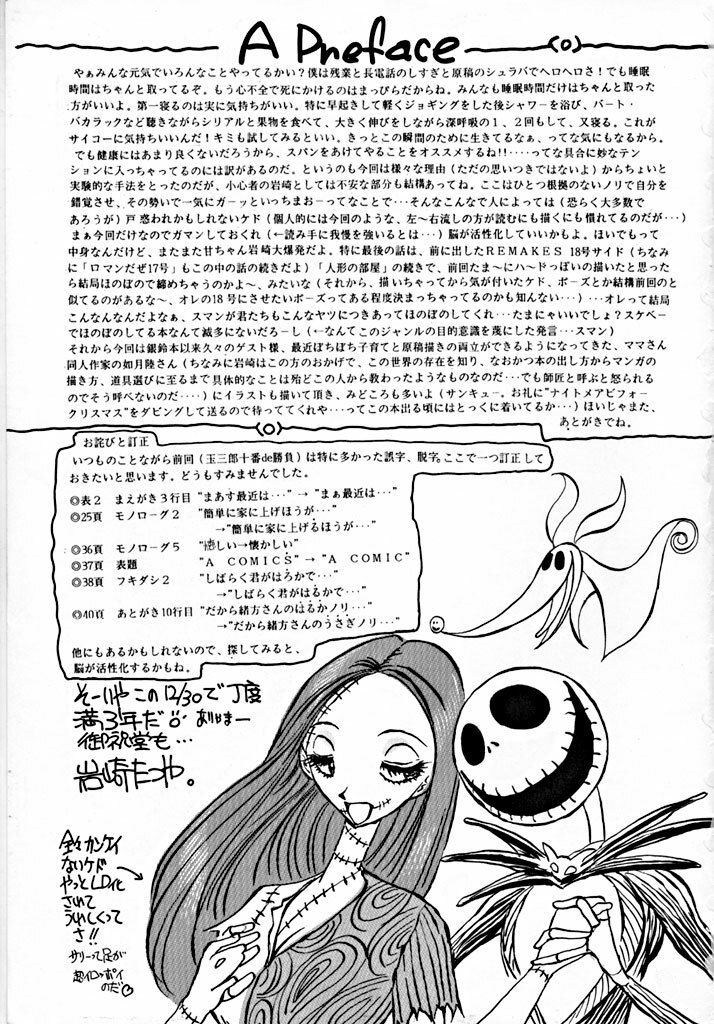 A Preface
やぁみんな元気でいろんなことやってるかい？僕は残業と長電話のしすぎと原稿のシュラバでヘロヘロさ！でも睡眠
時間はちゃんと取ってるぞ。もう心不全で死にかけるのはまっぴらだからね。みんなも睡眠時間だけはちゃんと取った
方がいいよ。第一寝るのは実に気持ちがいい。特に早起きして軽くジョギングをした後シャワーを浴び、バート・
バカラックなど聴きながらシリアルと果物を食べて、大きく伸びをしながら深呼吸の１、２回もして、又寝る。これが
サイコーに気持ちいいんだ！キミも試してみるといい。きっとこの瞬間のために生きてるなぁ、ってな気にもなるから。
でも健康にはあまり良くないだろうから、スパンをあけてやることをオススメするね!!‥‥ってな具合に妙なテン
ションに入っちゃってるのには訳があるのだ。というのも今回は様々な理由（ただの思いつきではないよ）からちょいと
実験的な手法をとったのだが、小心者の岩崎としては不安な部分も結構あってね。ここはひとつ根拠のないノリで自分を
錯覚させ、その勢いで一気にガーッといっちまおーってなことで‥‥そんなこんなで人によっては（恐らく大多数で
あろうが）戸惑われるかもしれないケド（個人的には今回のような、左〜右流しの方が読むにも描くにも慣れてるのだが‥‥）
まぁ今回だけなのでガマンしておくれ（←読み手に我慢を強いるとは‥‥）脳が活性化していいかもよ。ほいでもって
中身なんだけど、またまた甘ちゃん岩崎大爆発だよ。特に最後の話は、前に出したＲＥＭＡＫＥＳ 18号サイド（ちなみ
に「ロマンだぜ17号」もこの中の話の続きだよ）「人形の部屋」の続きで、前回たま〜にハ〜ドっぽいの描いたと思った
ら結局ほのぼので締めちゃうのかよ〜、みたいな（それから、描いちゃってから気が付いたケド、ポーズとか結構前回のと
似てるのがあるな〜、オレの18号にさせたいポーズってある程度決まっちゃってるのかも知んない‥‥）‥‥オレって結局
こんなんなんだよなぁ、スマンが君たちもこんなヤツにつきあってほのぼのしてくれ‥‥たまにゃいいでしょ？スケベー
でほのぼのしてる本なんて滅多にないだろーし（←なんてこのジャンルの目的意識を蔑にした発言‥‥スマン）
それから今回は銀鈴本以来久々のゲスト様、最近ぼちぼち子育てと原稿描きの両立ができるようになってきた、ママさん
同人作家の如月陸さん（ちなみに岩崎はこの方のおかげで、この世界の存在を知り、なおかつ本の出し方からマンガの
描き方、道具選びに至るまで具体的なことは殆どこの人から教わったようなものなのだ‥‥でも師匠と呼ぶと怒られる
のでそう呼べないのだ‥‥）にイラストも描いて頂き、みどころも多いよ（サンキュー。お礼に”ナイトメアビフォー
クリスマス”をダビングして送るので待っててくれや‥‥ってこの本出る頃にはとっくに着いてるか‥‥）ほいじゃまた、
あとがきでね。
お詫びと訂正
いつものことながら前回（玉三郎十番de勝負）は特に多かった誤字、脱字。ここで一つ訂正して
おきたいと思います。どうもすみませんでした。
◎表２　まえがき３行目 “まあす最近は‥‥”→“まぁ最近は‥‥”
◎25頁　モノローグ２　“簡単に家に上げほうが‥‥”
→“簡単に家に上げるほうが‥‥”
◎36頁　モノローグ５　→懐かしい”
◎37頁　表題　“Ａ ＣＯＭＩＣＳ”→“Ａ ＣＯＭＩＣ”
◎38頁　フキダシ２　“しばらく君がはろかで‥‥”
→“しばらく君がはるかで‥‥”
◎40頁　あとがき10行目 “だから緒方さんのはるかノリ‥‥”
→“だから緒方さんのうさぎノリ‥‥”
他にもあるかもしれないので、探してみると、
脳が活性化するかもね。
そーいや この12/30で丁度
満3年だ ありはまー
御祝堂も‥‥
岩崎たつや。
全々カンケイ
ないケド
やっとLD化
されて
うれしくって
さ!!
サリーって足が
超イロッポイ
のだ♡